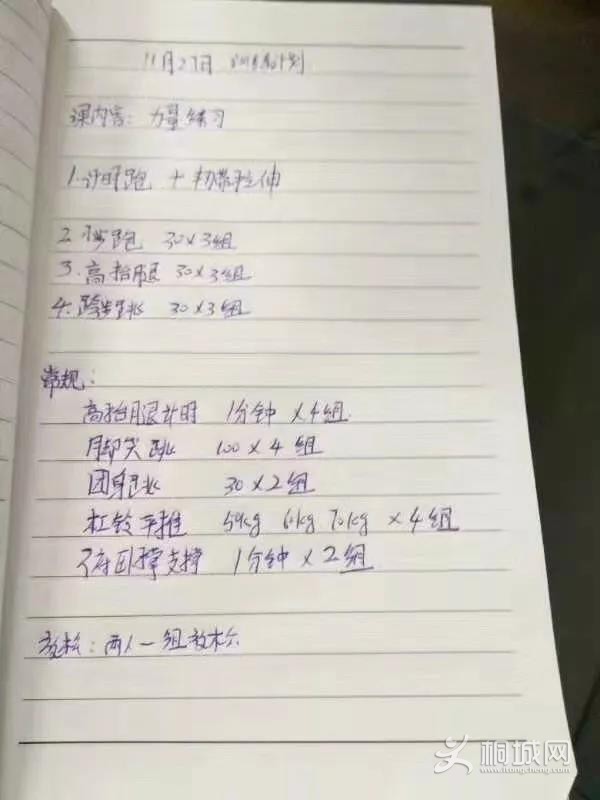 11月27日 训练计划
课内容：力量练习
1.计时跑 + 韧带拉伸
2. 跑 30×3组
3.高抬腿 30×3组
4.跨步跳 30×3组
常规：
高抬腿计时 1分钟 ×4组
脚尖跳 100×4组
团身跳 30×2组
杠铃平推 50kg 60kg 70kg ×4组
俯卧撑支撑 1分钟×2组
放松：两人一组放松
桐城网
www.itongcheng.com